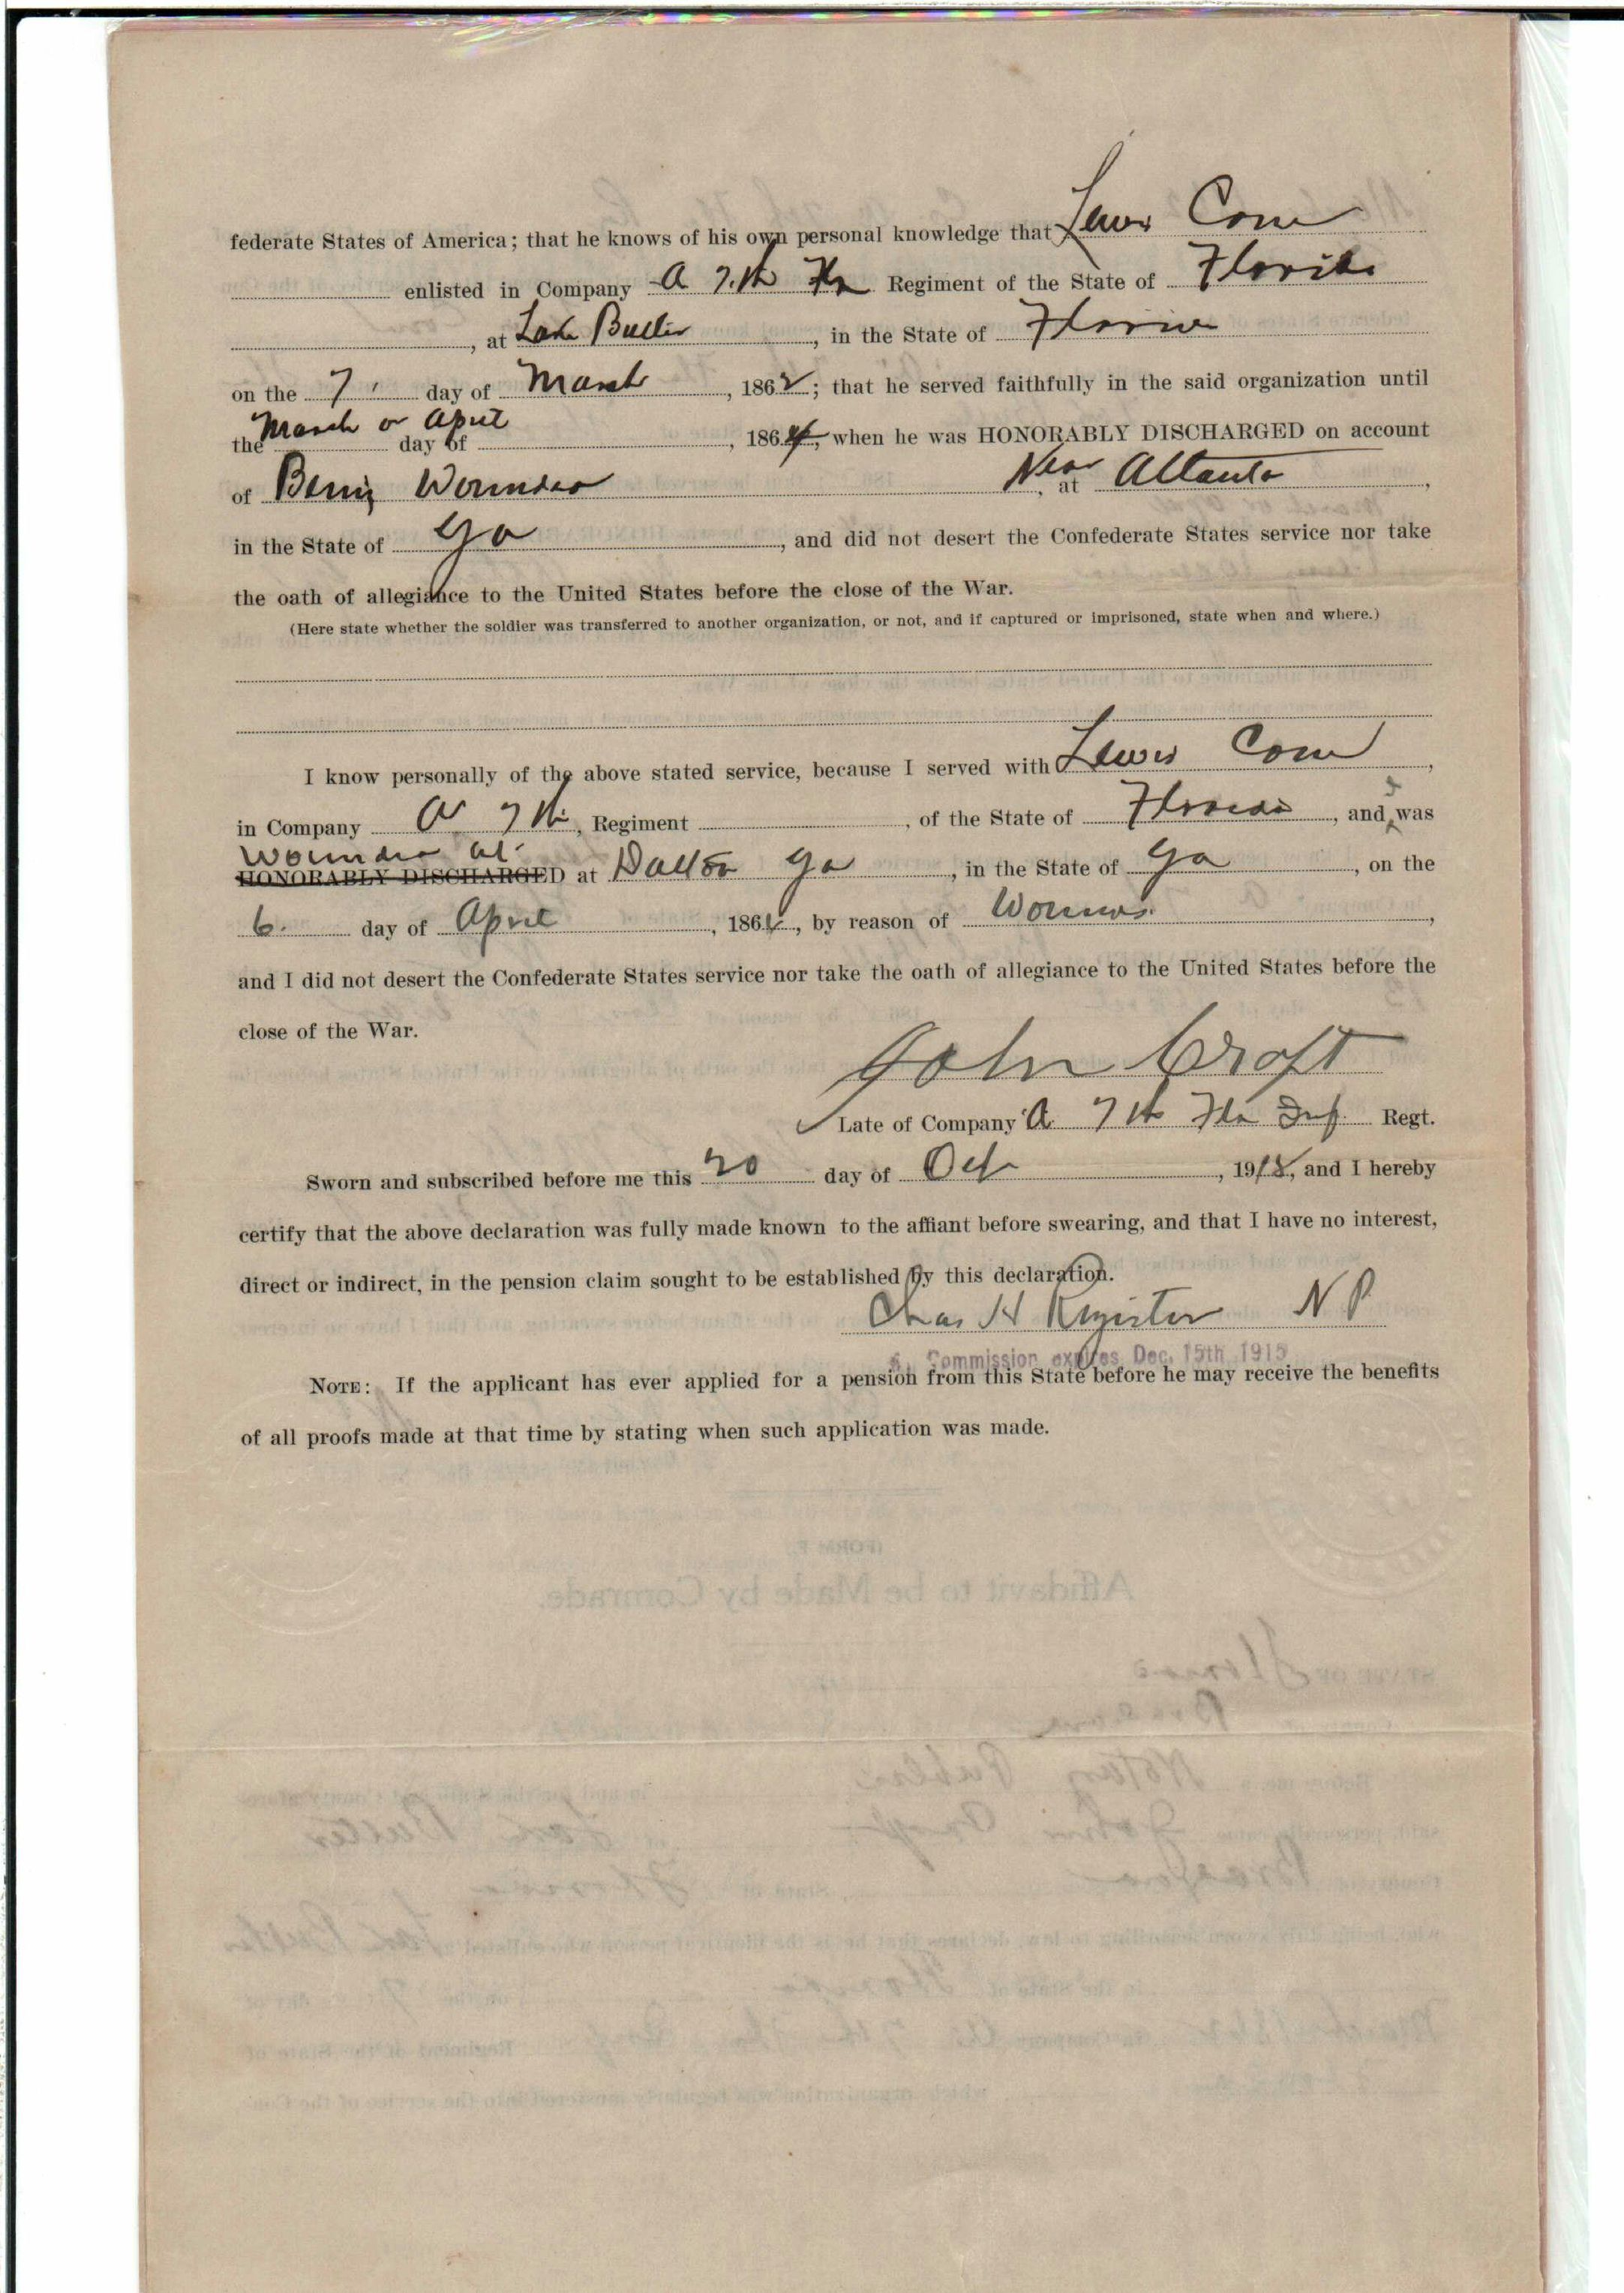 federate States of America; that he knows of his own personal knowledge that Lewis
enlisted in Company A 7th Fla Regiment of the State of Florida
, at Lake Butler, in the State of Florida
on the 7 day of March, 1862; that he served faithfully in the said organization until
the March or April day of , 1864, when he was HONORABLY DISCHARGED on account
of Being Wounded Near at Atlanta,
in the State of Ga, and did not desert the Confederate States service nor take
the oath of allegiance to the United States before the close of the War.
(Here state whether the soldier was transferred to another organization, or not, and if captured or imprisoned, state when and where.)
I know personally of the above stated service, because I served with Lewis,
in Company A 7th, Regiment , of the State of Florida, and I was
Wounded at
HONORABLY DISCHARGED at Dalton Ga, in the State of Ga, on the
6. day of April, 186, by reason of Wounds,
and I did not desert the Confederate States service nor take the oath of allegiance to the United States before the
close of the War.
John Croft
Late of Company A 7th Fla Inf. Regt.
Sworn and subscribed before me this 20 day of Oct, 191, and I hereby
certify that the above declaration was fully made known to the affiant before swearing, and that I have no interest,
direct or indirect, in the pension claim sought to be established by this declaration.
Chas H Register N P
Commission expires Dec. 15th 1915
NOTE: If the applicant has ever applied for a pension from this State before he may receive the benefits
of all proofs made at that time by stating when such application was made.